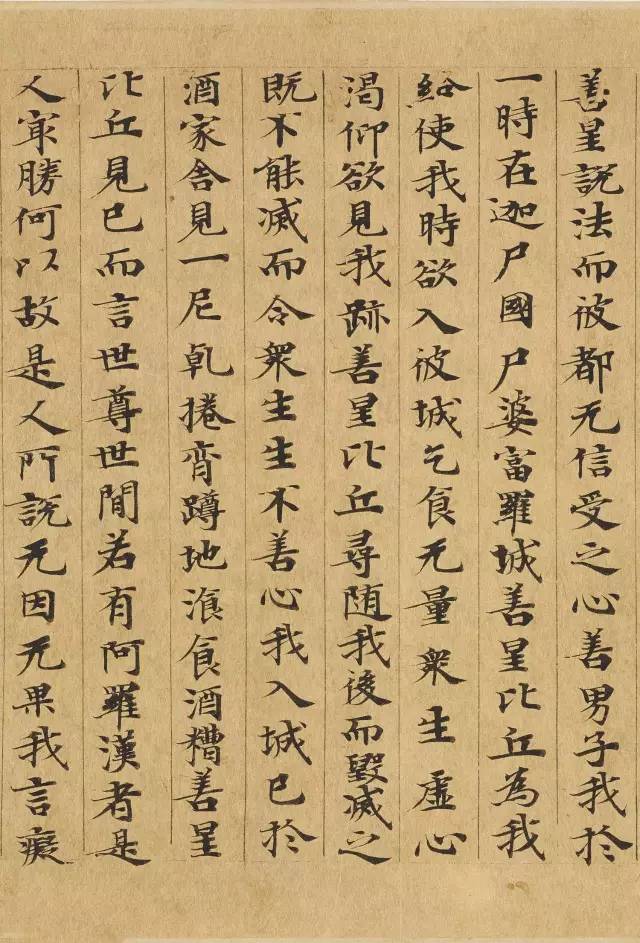 善星說法而彼都无信受之心善男子我於
一時在迦尸國尸婆富羅城善星比丘為我
給使我時欲入彼城乞食无量衆生虛心
渴仰欲見我跡善星比丘尋随我後而毀滅之
既不能滅而令衆生生不善心我入城已於
酒家舍見一尼乹捲脊蹲地飡食酒糟善星
比丘見已而言世尊世間若有阿羅漢者是
人㝡勝何以故是人所說无因无果我言癡